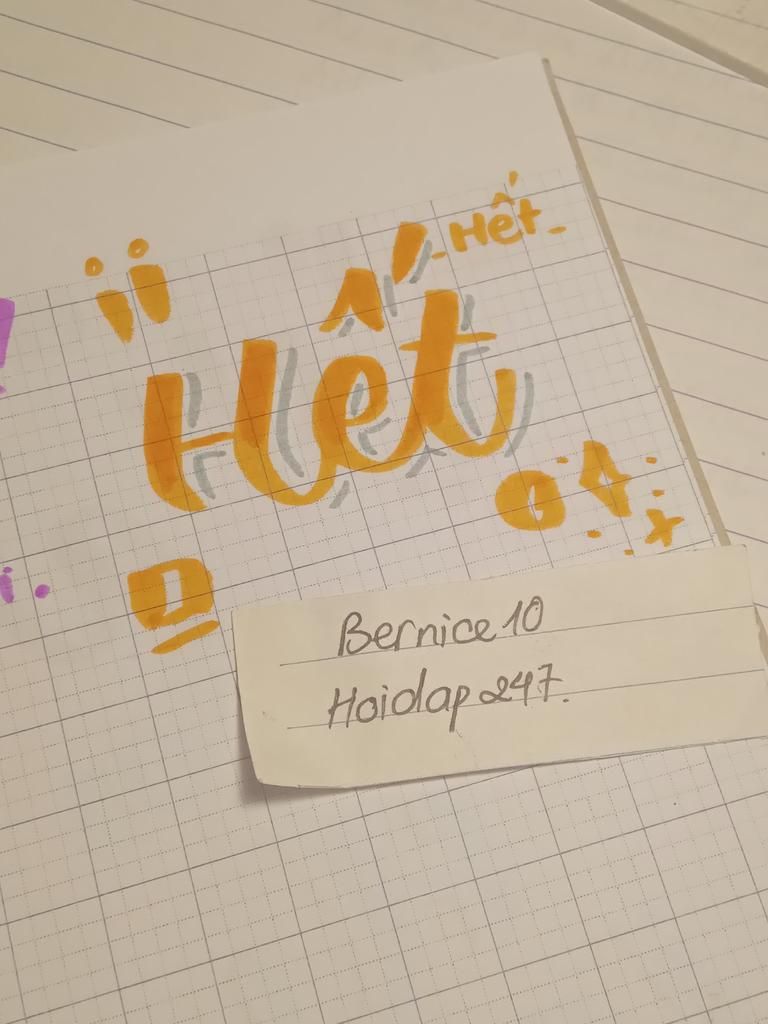 -Hết-
Hết
Bernice 10
Hoidap 247.